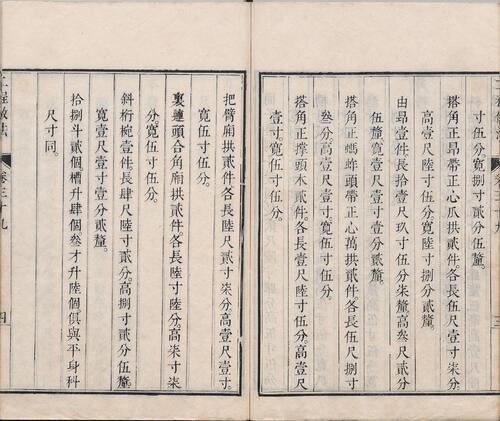 寸伍分寬捌寸貳分伍釐
搭角正昻帶正心瓜拱貳件各長伍尺壹寸柒分
高壹尺陸寸伍分寬陸寸捌分貳釐
由昻壹件長拾壹尺玖寸伍分柒釐高叁尺貳分
伍釐寬壹尺壹寸壹分貳釐
搭角正螞蚱頭帶正心萬拱貳件各長伍尺捌寸
叁分高壹尺寬伍寸伍分
搭角正撐頭木貳件各長壹尺陸寸伍分高壹尺
壹寸寬伍寸伍分
把臂廂拱貳件各長陸尺貳寸柒分高壹尺壹寸
寬伍寸伍分
裏連頭合角廂拱貳件各長陸寸陸分高柒寸柒
分寬伍寸伍分
斜桁椀壹件長肆尺陸寸貳分高捌寸貳分伍釐
寬壹尺壹寸壹分貳釐
拾捌斗貳個槽升肆個叁才升陸個俱與平身科
尺寸同
卷三十九
四